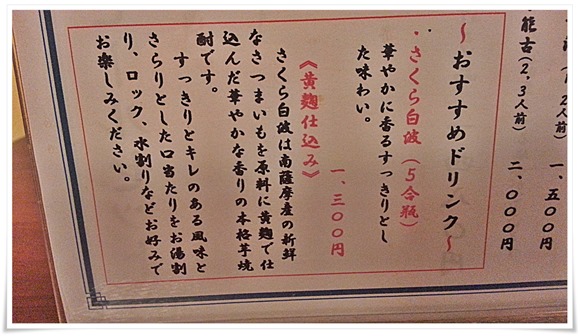 一、五〇〇円
能古(2,3人前)
二、〇〇〇円
～おすすめドリンク～
・さくら白波(5合瓶)
華やかに香るすっきりとし
た味わい。
一、三〇〇円
《黄麹仕込み》
さくら白波は南薩摩産の新鮮
なさつまいもを原料に黄麹で仕
込んだ華やかな香りの本格芋焼
酎です。
すっきりとキレのある風味と
さらりとした口当たりをお湯割
り、ロック、水割りなどお好みで
お楽しみください。